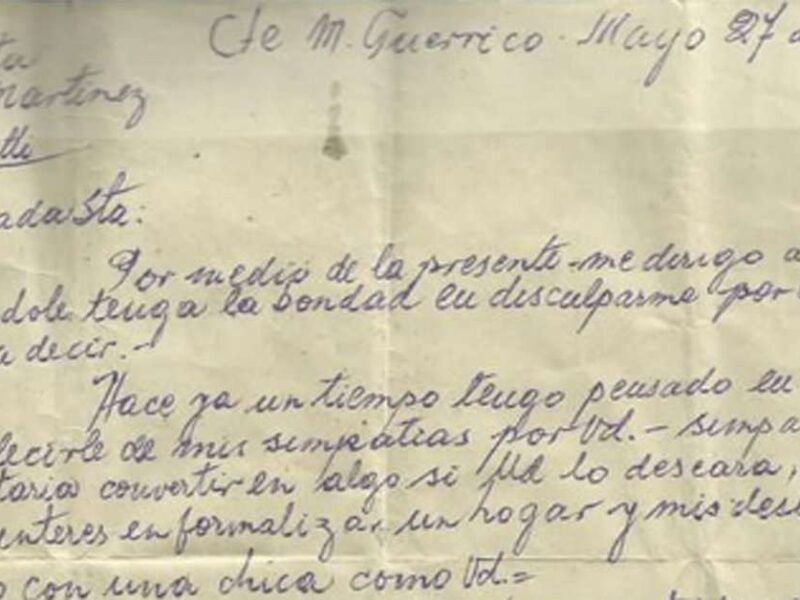 Cte M. Guerrico. Mayo 27 d
ta
Martinez
ada Sta:
Por medio de la presente me dirigo a
dole tenga la bondad en disculparme por
a decir.-
Hace ya un tiempo tengo pensado en
decirle de mis simpatias por Vd.- simpa
taria convertir en algo si Ud lo deseara,
interes en formalizar un hogar y mis dese
o con una chica como Vd.=